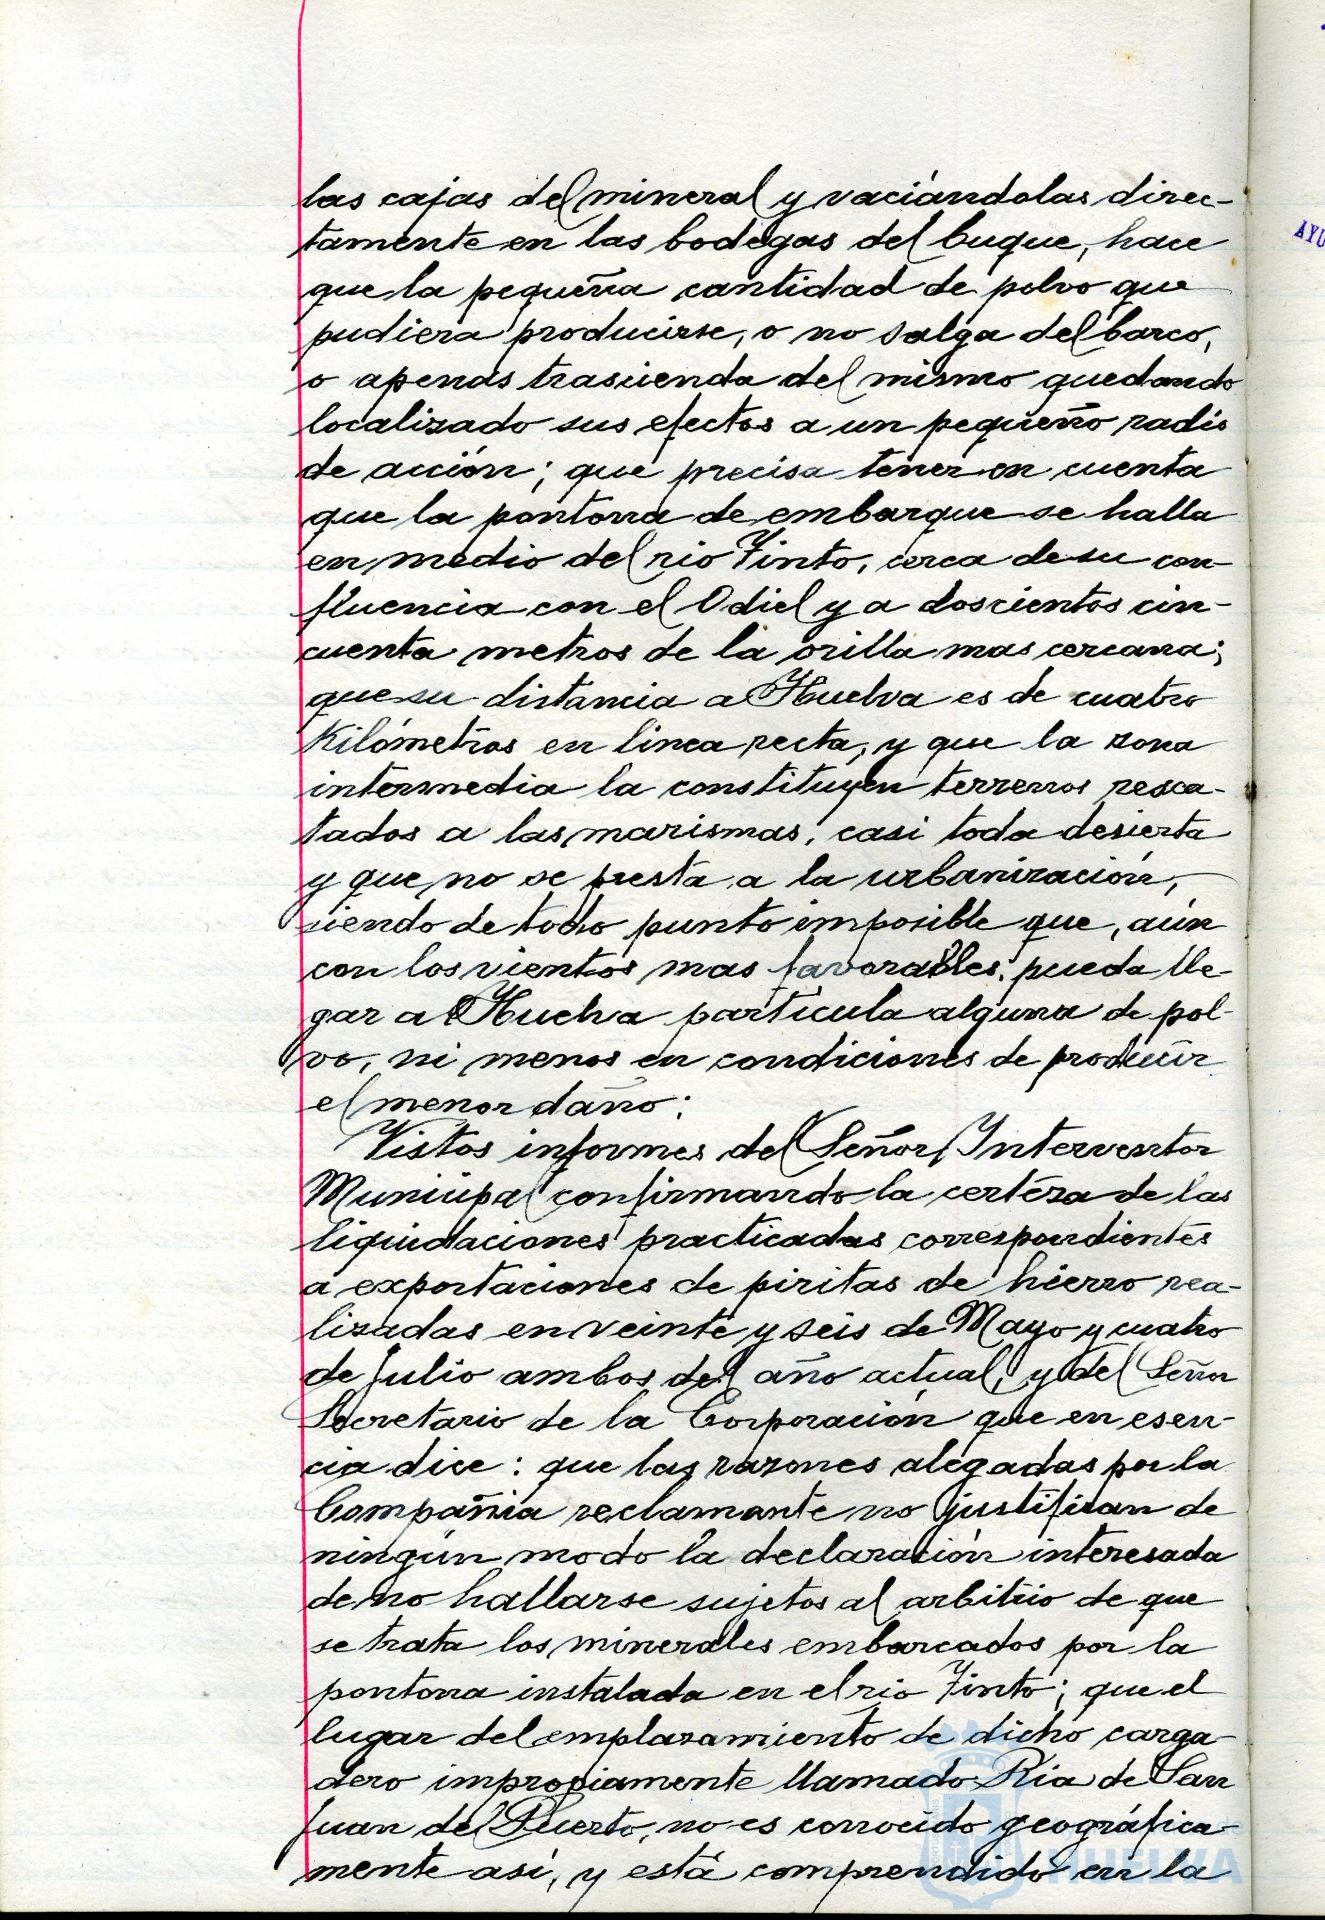 las cajas del mineral y vaciándolas direc-
tamente en las bodegas del buque, hace
que la pequeña cantidad de polvo que
pudiera producirse, o no salga del barco,
o apenas trascienda del mismo quedando
localizado sus efectos a un pequeño radio
de acción; que precisa tener en cuenta
que la pontona de embarque se halla
en medio del rio Tinto, cerca de su con-
fluencia con el Odiel y a doscientos cin-
cuenta metros de la orilla mas cercana;
que su distancia a Huelva es de cuatro
Kilómetros en linea recta, y que la zona
intermedia la constituyen terrenos resca-
tados a las marismas, casi toda desierta
y que no se presta a la urbanización,
siendo de todo punto imposible que, aún
con los vientos mas favorables, pueda lle-
gar a Huelva particula alguna de pol-
vo, ni menos en condiciones de producir
el menor daño;
Vistos informes del Señor Interventor
Municipal confirmando la certéza de las
liquidaciones practicadas correspondientes
a exportaciones de piritas de hierro rea-
lizadas en veinte y seis de Mayo y cuatro
de Julio ambos del año actual, y del Señor
Secretario de la Corporación que en esen-
cia dice: que las razones alegadas por la
Compañia reclamante no justifican de
ningún modo la declaración interesada
de no hallarse sujetos al arbitrio de que
se trata los minerales embarcados por la
pontona instalada en el rio Tinto; que el
lugar del emplazamiento de dicho carga-
dero impropiamente llamado Ria de San
Juan del Puerto, no es conocido geográfica-
mente asi, y está comprendido en la
HUELVA
AYU